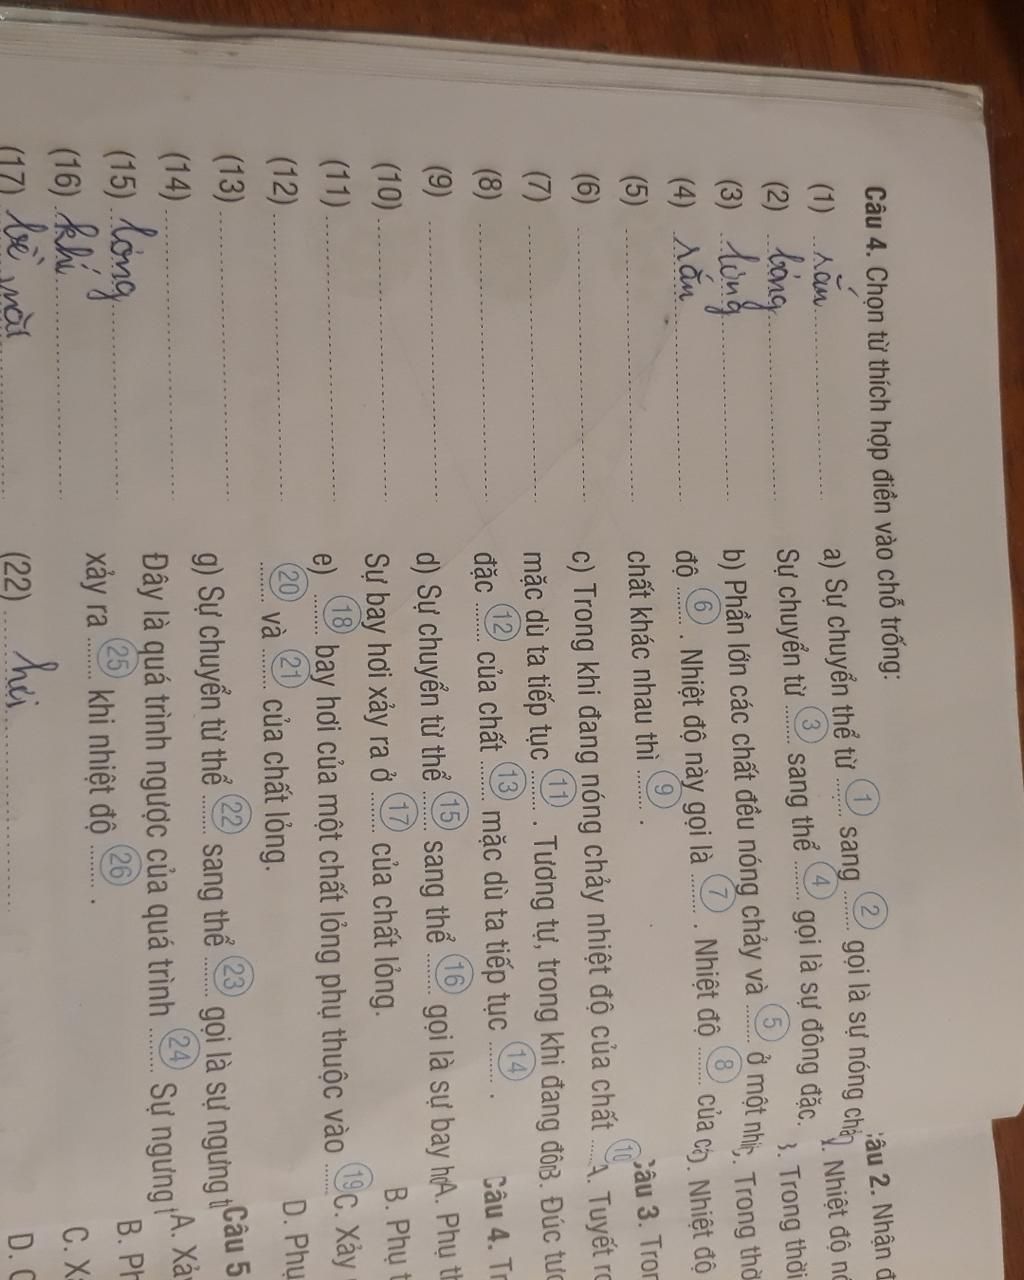 Câu 4. Chọn từ thích hợp điền vào chỗ trống:
(1) rắn
(2) lỏng
(3) lỏng
(4) rắn
(5)
(6)
(7)
(8)
(9)
(10)
(11)
(12)
(13)
(14)
(15) lỏng
(16) khí
(17) bề mặt
a) Sự chuyển thể từ ....... 1 sang ....... 2 gọi là sự nóng chảy.
Sự chuyển từ ....... 3 sang thể ....... 4 gọi là sự đông đặc.
b) Phần lớn các chất đều nóng chảy và ....... 5 ở một
độ ....... 6 . Nhiệt độ này gọi là ....... 7 . Nhiệt độ ....... 8 của
chất khác nhau thì ....... 9 .
c) Trong khi đang nóng chảy nhiệt độ của chất ....... 10
mặc dù ta tiếp tục ....... 11 . Tương tự, trong khi đang
đặc ....... 12 của chất ....... 13 mặc dù ta tiếp tục ....... 14 .
d) Sự chuyển từ thể ....... 15 sang thể ....... 16 gọi là sự bay
Sự bay hơi xảy ra ở ....... 17 của chất lỏng.
e) ....... 18 bay hơi của một chất lỏng phụ thuộc vào ....... 19
....... 20 và ....... 21 của chất lỏng.
g) Sự chuyển từ thể ....... 22 sang thể ....... 23 gọi là sự ngưng
Đây là quá trình ngược của quá trình ....... 24 Sự ngưng
xảy ra ....... 25 khi nhiệt độ ....... 26 .
(22) hơi
Câu 2. Nhận
Nhiệt độ
Trong thời
Trong
Nhiệt độ
Câu 3.
A. Tuyết
B. Đúc
Câu 4.
A. Phụ
B. Phụ
C. Xảy
D. Phụ
Câu 5
A.
B.
C.
D.